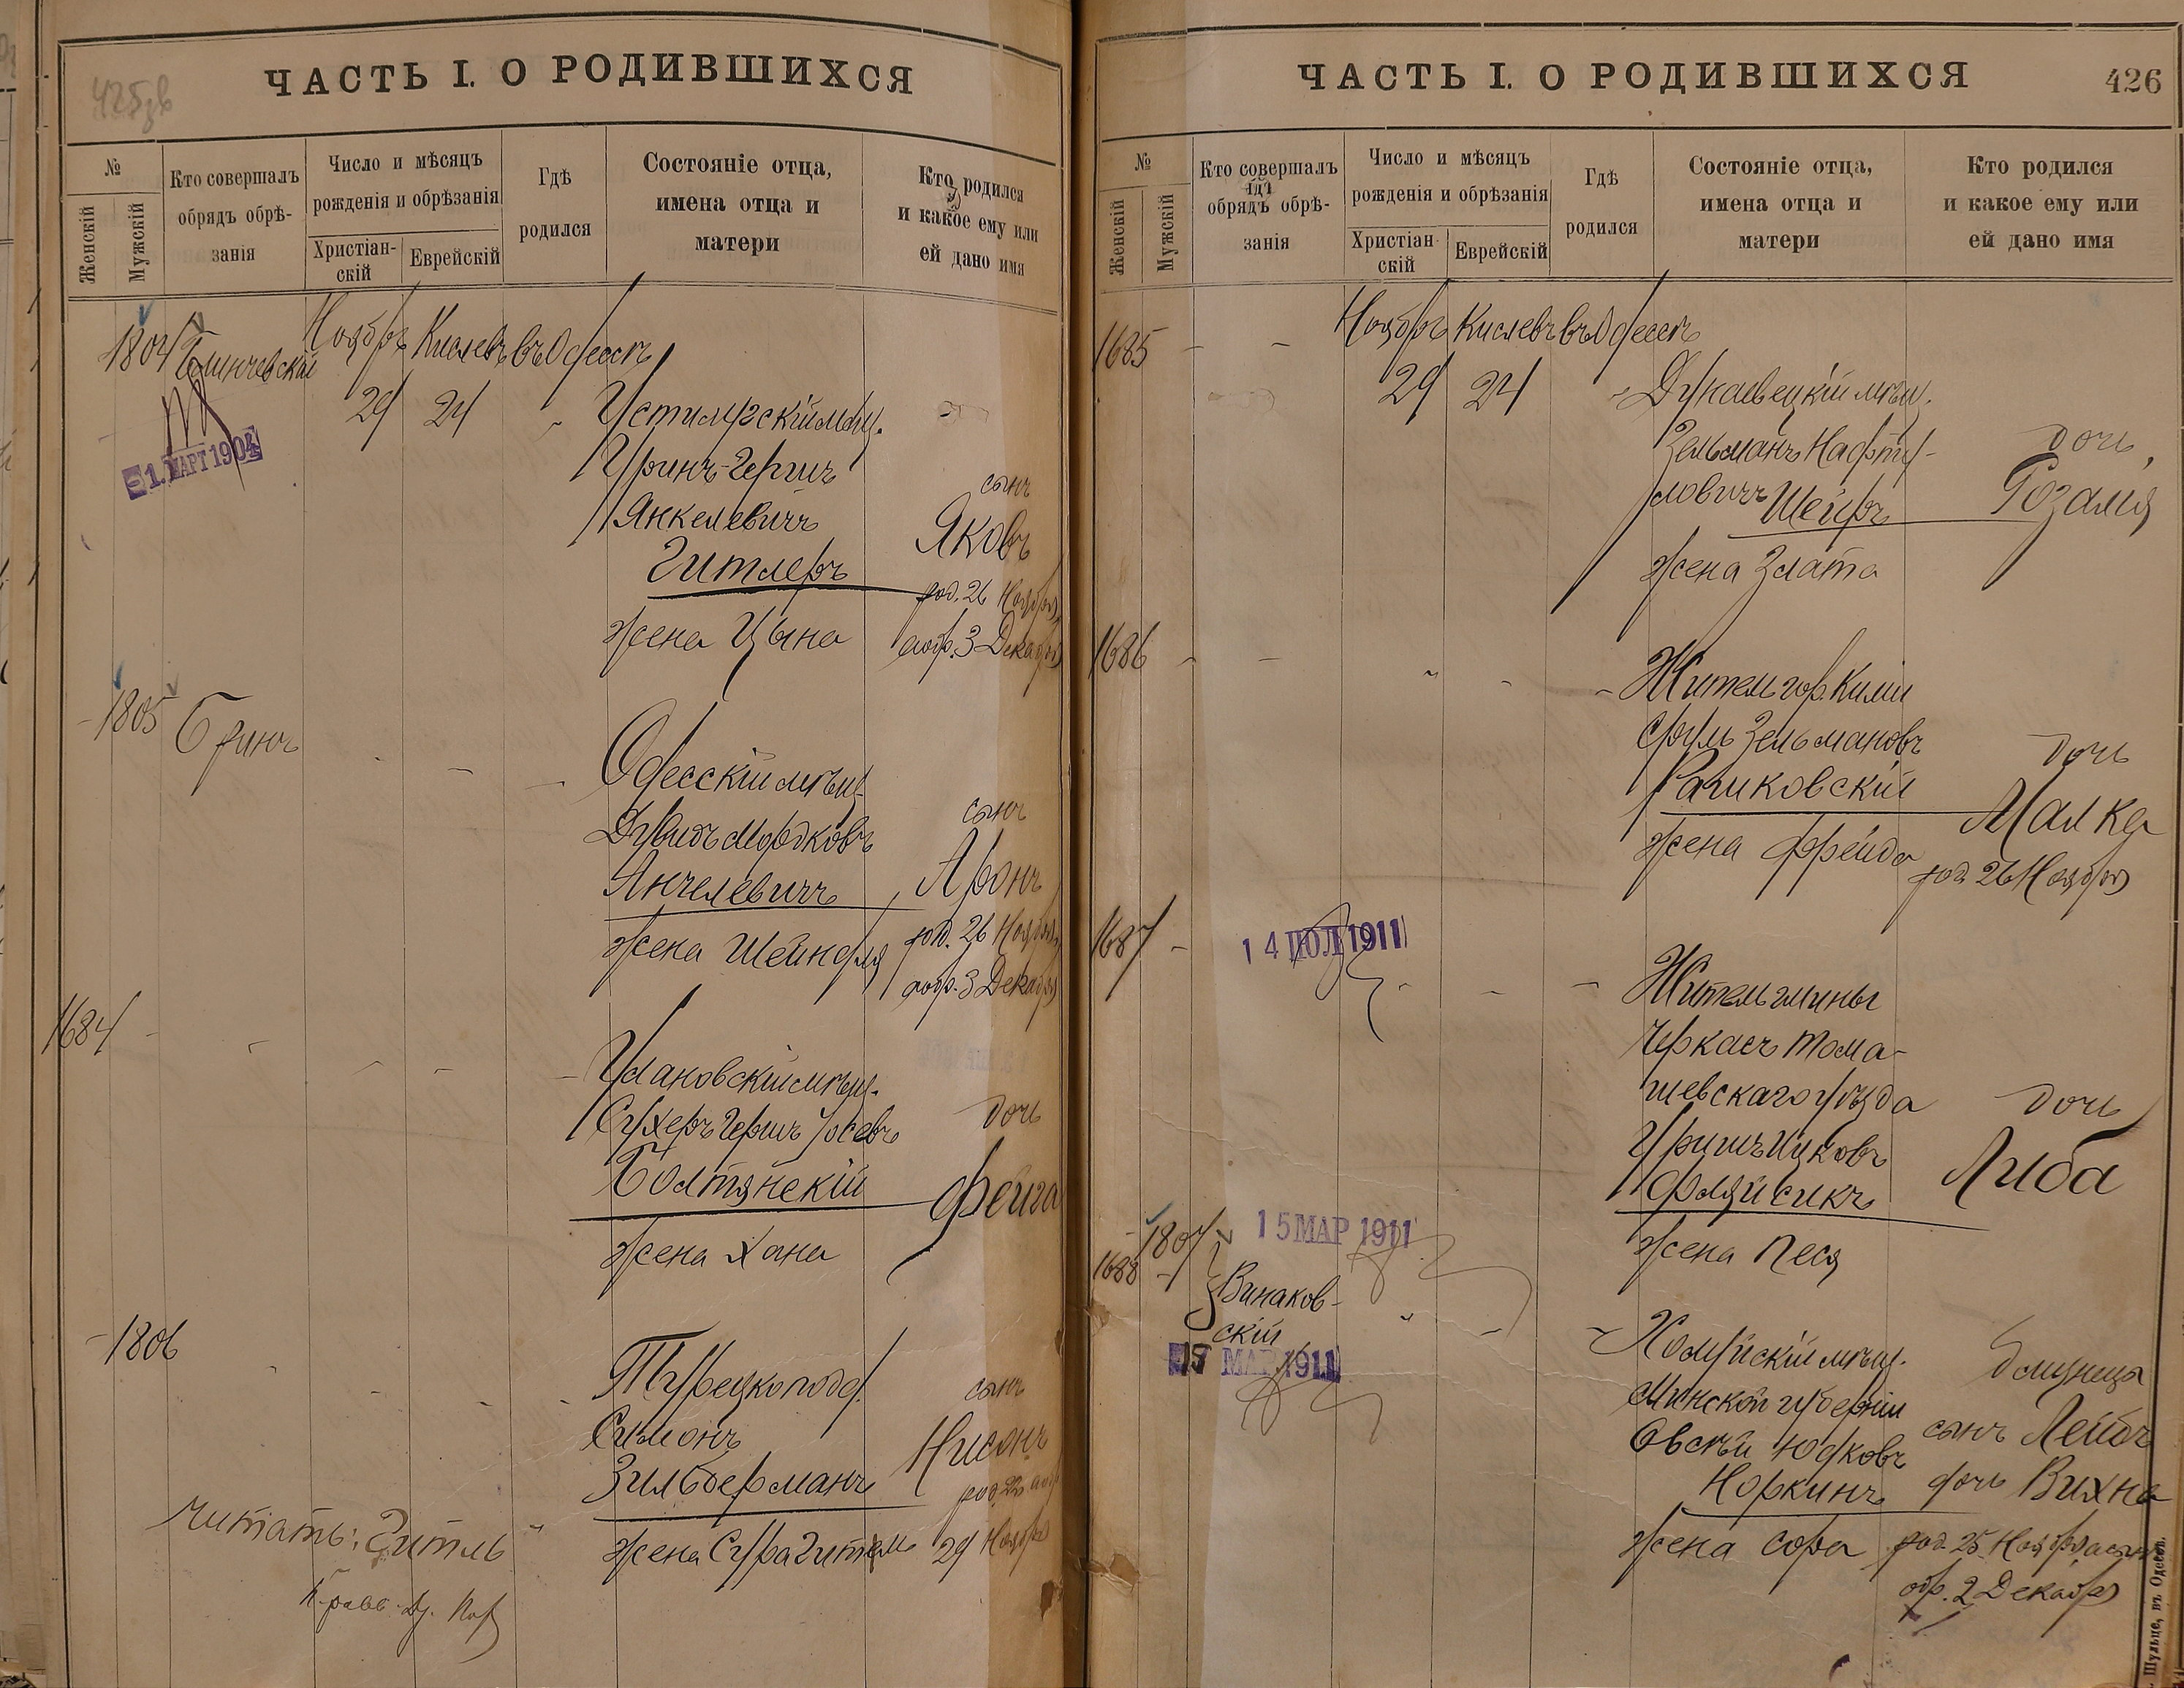 425 зв
ЧАСТЬ I. О РОДИВШИХСЯ
№
Женскій
Мужскій
Кто совершалъ
обрядъ обрѣ-
занія
Число и мѣсяцъ
рожденія и обрѣзанія
Христіан-
скій
Еврейскій
Гдѣ
родился
Состояніе отца,
имена отца и
матери
Кто родился
и какое ему или
ей дано имя
1804
Ноябрь Кислевъ въ Одессѣ
29 24
1.МАРТ 1904
сынъ
Янкелевичъ
Яковъ
Гитлеръ
род. 26 Ноября
жена Цына
а обр. 3 Декабря
1805 Бринъ
Одесскій мѣщ.
Дувидъ Мордковъ
сынъ
Анчелевичъ
Аронъ
жена Шейндля
род. 26 Ноября
а обр. 3 Декабря
1684
Улановскій мѣщ.
Сухеръ Гершъ
дочь
Болтянскій
Фейга
жена Хана
1806
Турецкоподд.
сынъ
Симонъ
Нисонъ
Зильберманъ
род. 22 а обр.
жена Сура Гитель 29 Ноября
Читать: Гитль
ЧАСТЬ I. О РОДИВШИХСЯ
426
№
Женскій
Мужскій
Кто совершалъ
обрядъ обрѣ-
занія
Число и мѣсяцъ
рожденія и обрѣзанія
Христіан-
скій
Еврейскій
Гдѣ
родился
Состояніе отца,
имена отца и
матери
Кто родился
и какое ему или
ей дано имя
1685
Ноябрь Кислевъ въ Одессѣ
29 24
Дунаевецкій мѣщ.
Зельманъ Нафту-
дочь
ловичъ Шейръ
Розалія
жена Злата
1686
Житель гор. Киліи
Сруль Зельмановъ
дочь
Рашковскій
Малка
жена Фрейда
род. 26 Ноября
1687
14 ИЮЛ 1911
Житель гмины
Черкасъ Тома-
шевскаго уѣзда
дочь
Ицковъ
Либа
Фляйсикъ
жена Песя
1807
15 МАР 1911
1688
Винаков-
скій
МАР 1911
мѣщ.
близнецы
Минской губерніи
Овсѣй Юдковъ
сынъ Лейбъ
Норкинъ
дочь Вихна
жена Сора
род. 25 Ноября а сынъ
обр. 2 Декабря
Шульце, въ Одессѣ.